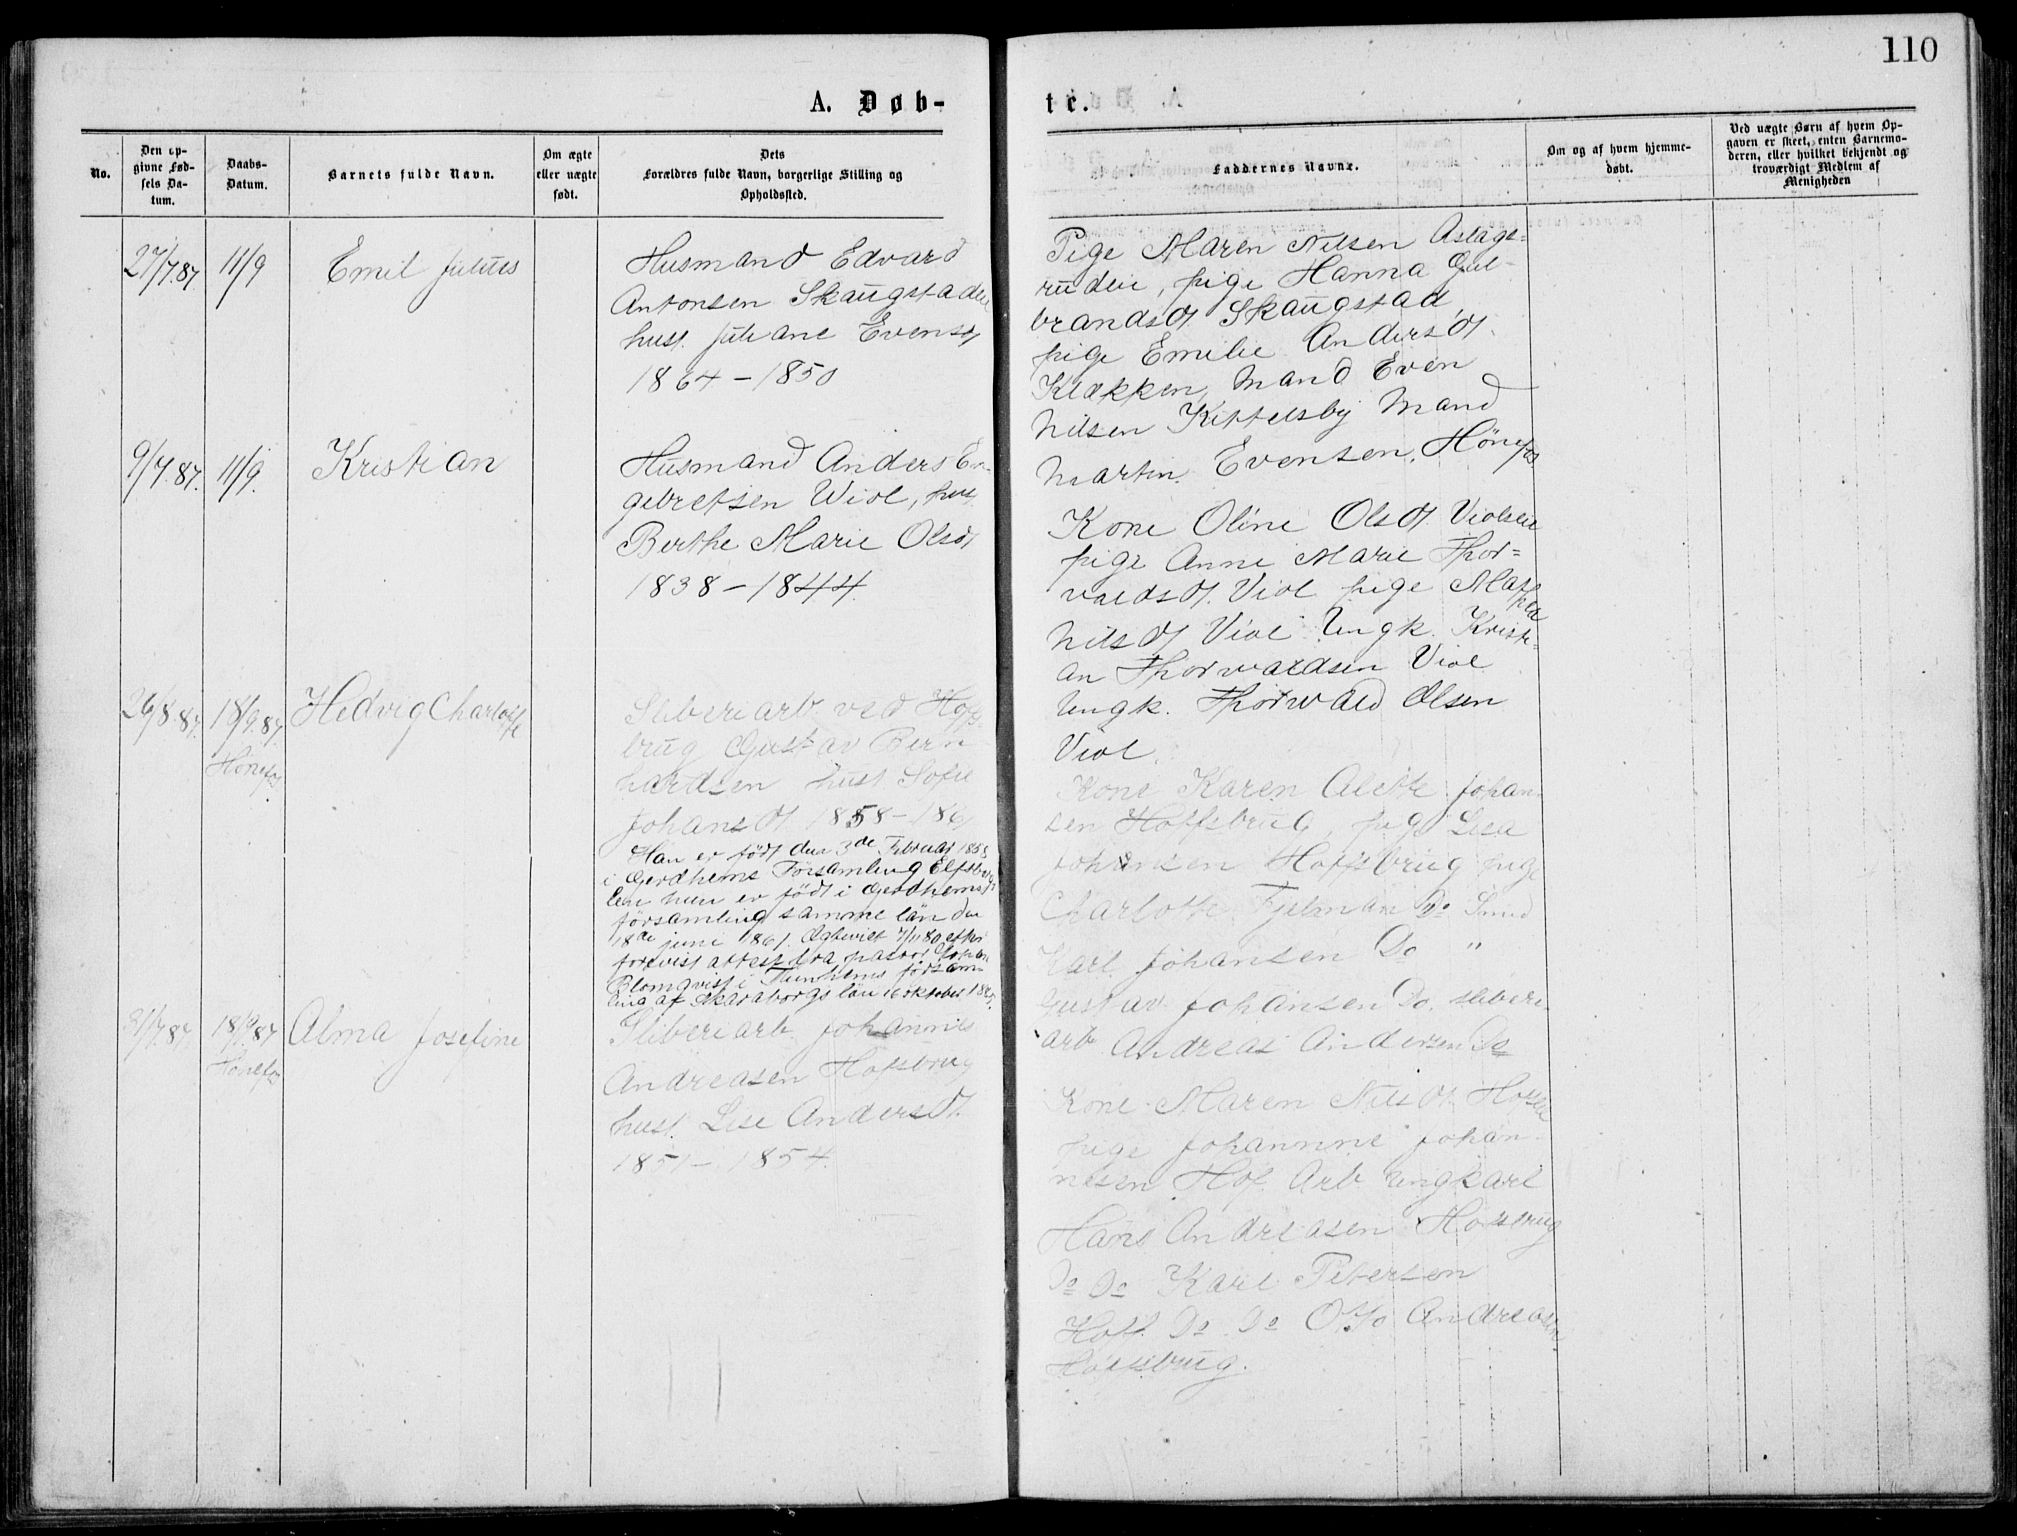 110
A. Døb-
te.
No.
Den op-
givne Fød-
sels Da-
tum.
Daabs-
Datum.
Barnets fulde Navn.
Om ægte
eller uægte
født.
Dets
Forældres fulde Navn, borgerlige Stilling og
Opholdssted.
Faddernes Navne.
Om og af hvem hjemme-
døbt.
Ved uægte Børn af hvem Op-
gaven er skeet, enten Barnemo-
deren, eller hvilket bekjendt og
troværdigt Medlem af
Menigheden
27/7.87
11/9
Emil Julius
Husmand Edvard
Antonsen Skaugstadeie
hust. Juliane Evensd
1864-1850
Pige Maren Nilsen Aslags=
rudeie, pige Hanna Gul-
brandsdt Skaugstad,
pige Emilie Andersdt.
Klækken, Mand Even
Nilsen Kittelsby Mand
Martin Evensen, Hönefos
9/7.87.
11/9.
Kristian
Husmand Anders En-
gebretsen Wiol, hus
Berthe Marie Olsdt
1838-1844.
Kone Oline Olsdt. Violseie
pige Anne Marie Thor=
valdsdt. Viol pige Mathilde
Nilsdt Viol Ungk. Kristi-
an Thorwaldsen Viol
Ungk. Thorwald Olsen
Viol.
26/8.87.
18/9.87.
Hönefos
Hedvig Charlotte
Sliberiarb ved Hofs-
brug Gustav Bern
hardsen hust Sofie
Johansdt 1858-1861
Han er födt den 3de Februar 1858
i Gerdhems Församling Elfsborgs
len hun er födt i Gerdhems
församling samme län den
18de juni 1861. Ægteviet 7/11 80 efter
forevist attest fra pastor Johan
Blomqvist i Tunhems försam-
ling af Skaraborgs län 16 oktober 188
Kone Karen Alette Johan-
sen Hoffsbrug, pige Lisa
Johansen Hoffsbrug pige
Charlotte Fjelman Do Smed
Karl Johansen Do "
Gustav Johansen Do. sliberi-
arb Andreas Andersen Do
18/9.87
Hönefos
Alma Josefine
Sliberiarb. Johannes
Andreasen Hofsbrug
hust. Lise Andersdt.
1851-1854.
Kone Maren Nilsdt. Hofseie
pige Johannne Johan-
nesen Hof. Arb Ungkarl
Hans Andreasen Hofsbrug
Do Do Karl Petersen
Hoff. Do Do Otto Andreasen
Hofsbrug.